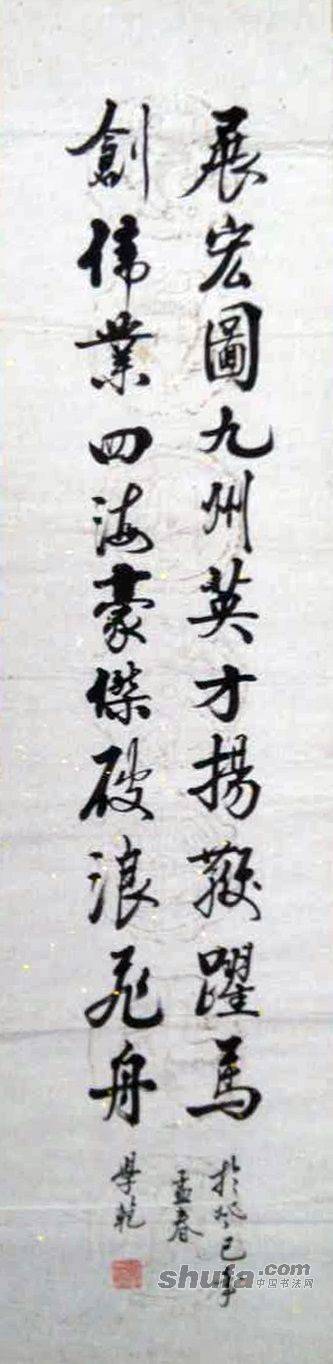 展宏圖九州英才揚鞭躍馬
創偉業四海豪傑破浪飛舟
於癸巳年
孟春
學乾
shufa.com
中国书法网